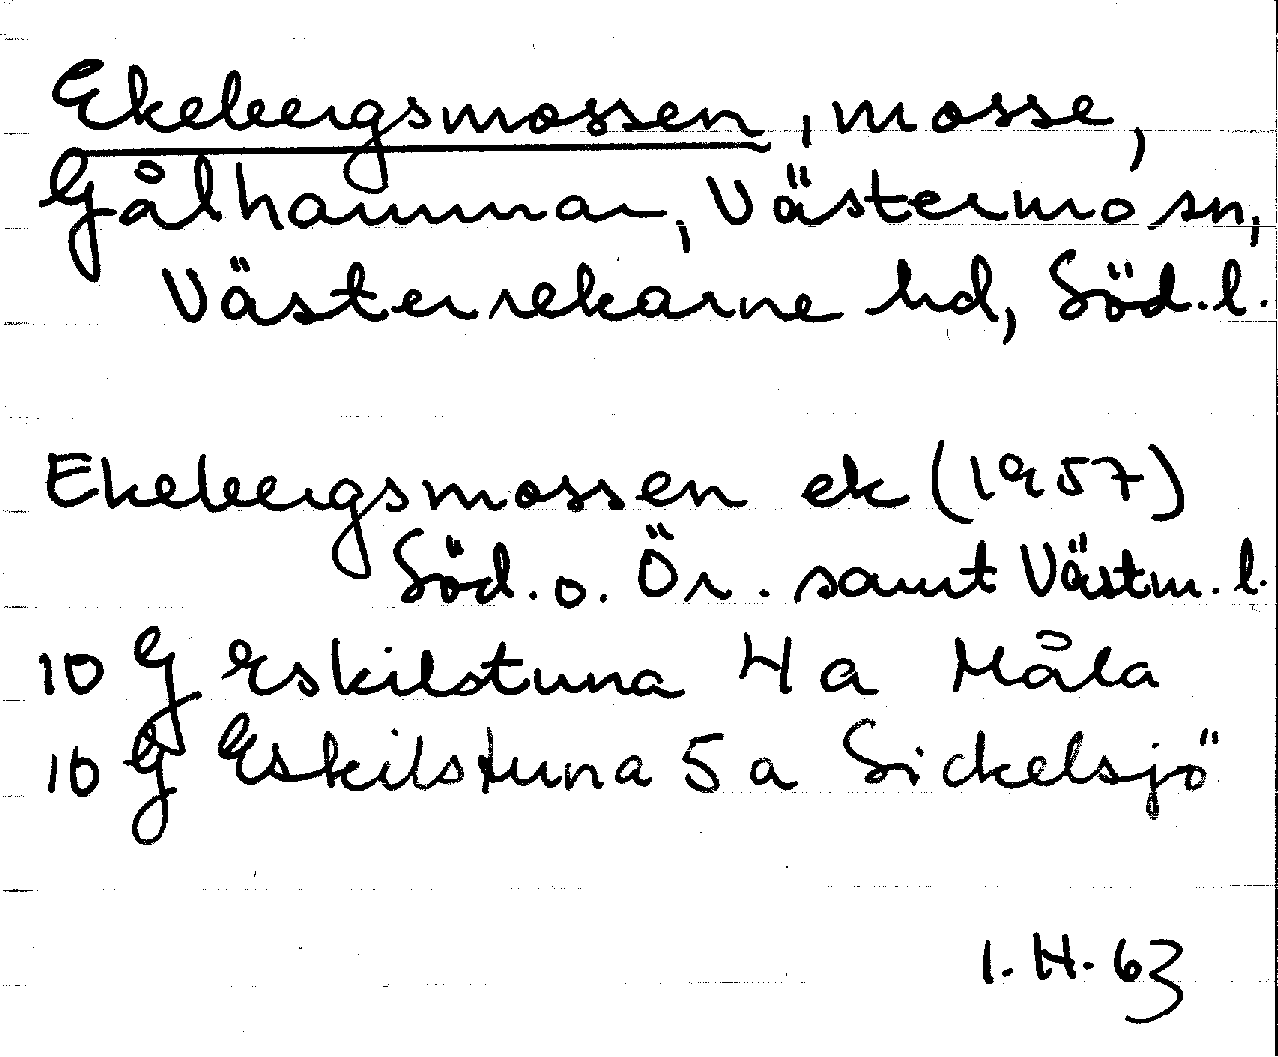 Ekebergsmossen, mosse,
Gålhammar, Västermo sn,
Västerrekarne hd, Söd.l.
Ekebergsmossen ek (1957)
Söd. o. Ör. samt Västm. l.
10 G Eskilstuna 4 a Måla
10 G Eskilstuna 5 a Sickelsjö
I. H. 63